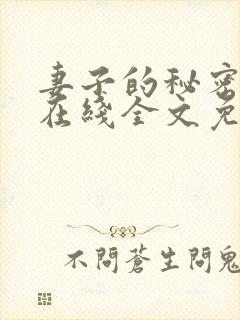 妻子的秘密
在綫全文免
不問蒼生問鬼